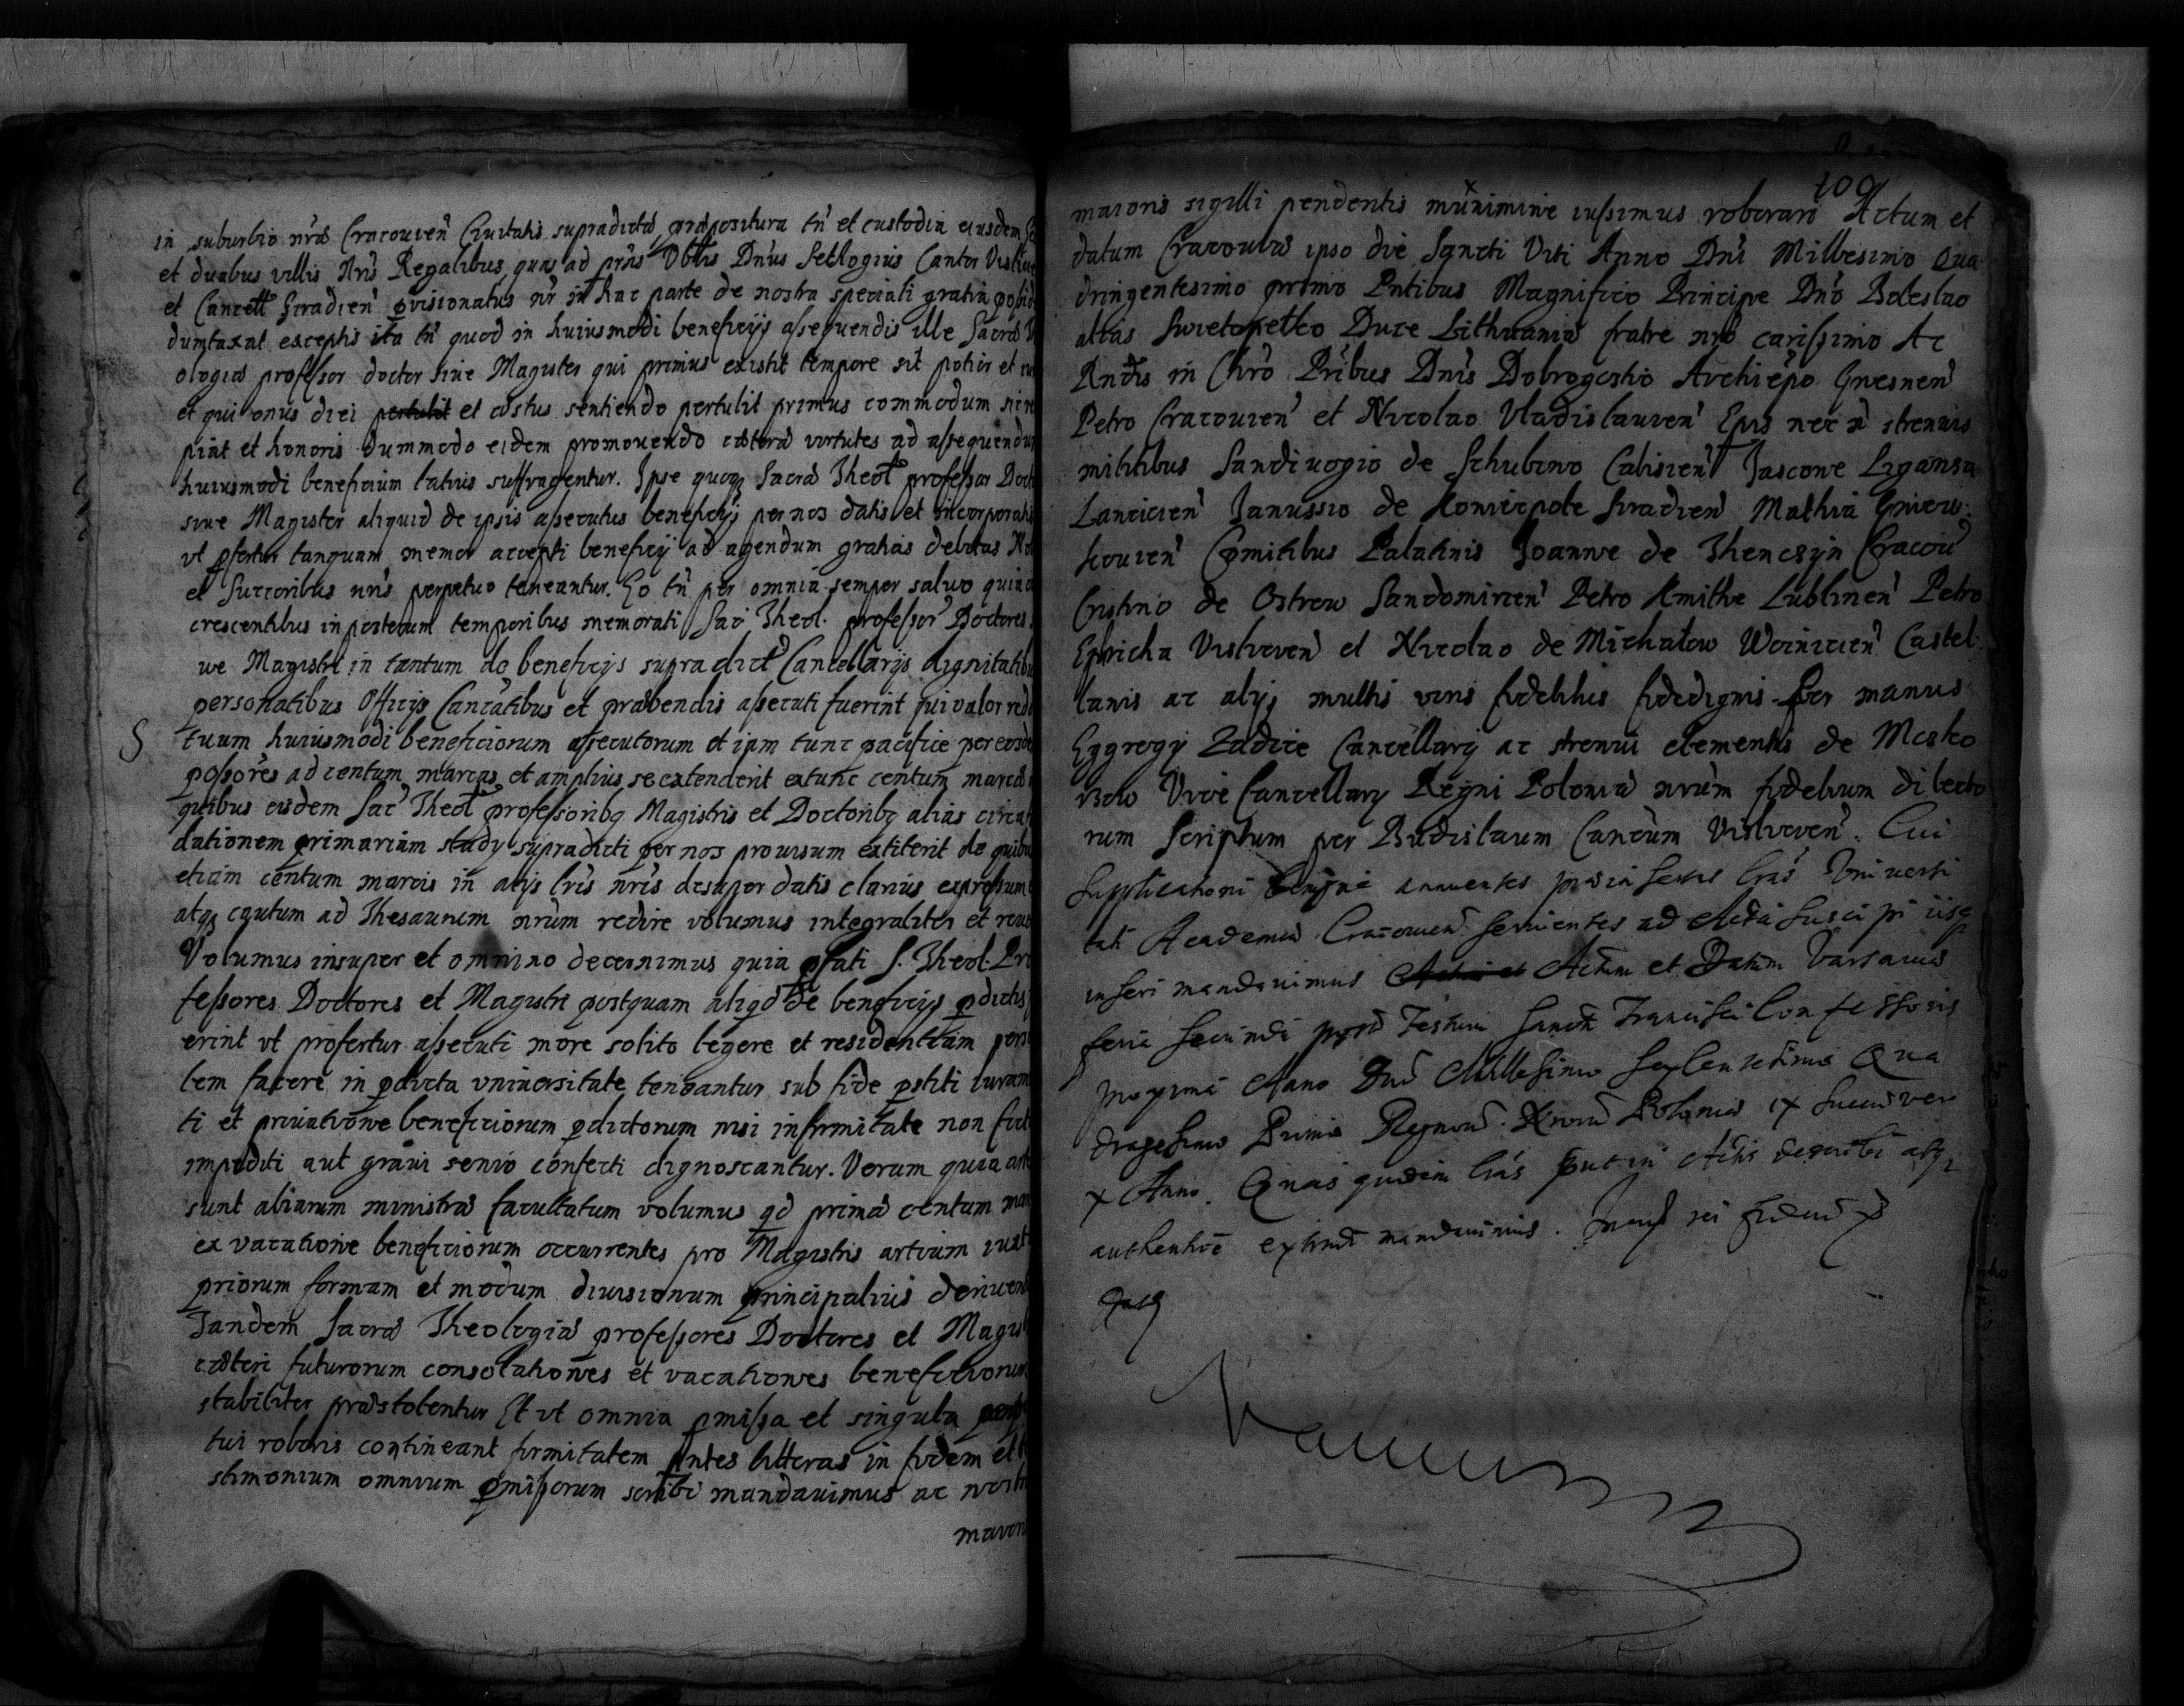 in suburbio nræ Cracouien Ciuitatis supradictæ præpositura tn et custodia eiusdem
et duabus villis nris Regalibus quas ad prns Vblis Dnus Setlogius Cantor Vislicien
et Cancell Siradien prouisionatus nr in hac parte de nostra speciali gratia
dumtaxat exceptis ita tn quod in huiusmodi beneficijs assequendis ille Sacræ
ologiæ professor doctor siue Magister qui primus existit tempore sit potior et
et qui onus diei pertulit et æstus sentiendo pertulit primus commodum
piat et honoris dummodo eidem promouendo cætera virtutes ad assequendum
huiusmodi beneficium latius suffragentur. Ipse quoq Sacræ Theol professor Doct
siue Magister aliquid de ipsis assecutus beneficijs per nos datis et incorporatis
vt pfertur tanquam memor accepti beneficij ad agendum gratias debitas
et Succoribus nris perpetuo teneantur. Eo tn per omnia semper saluo quia
crescentibus in posterum temporibus memorati Sac Theol. professor Doctores
we Magistri in tantum de beneficijs supradict Cancellarijs dignitatibus
personatibus Officijs Cancatibus et præbendis assecuti fuerint qui valor red
S tuum huiusmodi beneficiorum assecutorum et iam tunc pacifice per eosdem
possores ad centum marcas et amplius se extenderit extunc centum marcæ
quibus eisdem Sac Theol professoribq Magistris et Doctoribq alias circa
dationem primariam studij supradicti per nos prouisum extiterit de quibus
etiam centum marcis in alijs lris nris desuper datis clarius expressum
atq cautum ad Thesaurum nrum redire volumus integraliter et
Volumus insuper et omnino decernimus quia pfati S. Theol. Pro
fessores Doctores et Magistri postquam aliqd de beneficijs pdictis
erint vt profertur assecuti more solito legere et residentiam pers
lem facere in pdicta vniuersitate teneantur sub fide pstiti iuram
ti et priuatione beneficiorum pdictorum nisi infirmitate non fict
impediti aut graui senio confecti dignoscantur. Verum quia
sunt aliarum ministræ facultatum volumus qd primæ centum mar
ex vacatione beneficiorum occurrentes pro Magistris artium iuxt
priorum formam et modum diuisionum principalius deriuent
Tandem Sacræ Theologiæ professores Doctores et Magist
cæteri futurorum consolationes et vacationes beneficiorum
stabiliter præstolentur Et vt omnia pmissa et singula perp
tui roboris contineant firmitatem pntes litteras in fidem et
stimonium omnium pmissorum scribi mandauimus ac nostri
maioris
100
maioris sigilli pendentis munimine iussimus roborari Actum et
datum Cracouiæ ipso die Sancti Viti Anno Dni Millesimo Qua
dringentesimo primo Pntibus Magnifico Principe Dno Boleslao
alias Swietopelko Duce Lithuaniæ fratre nro carissimo Ac
Rndis in Chro Pribus Dnis Dobrogostio Archiepo Gnesnen
Petro Cracouien et Nicolao Vladislauien Epis nec n strenuis
militibus Sandiuogio de Schubino Calisien Jascone Ligansa
Lancicien Janussio de Koniecpole Siradien Mathia Gniew.
kouien Comitibus Palatinis Joanne de Thencsyn Cracou
Cristino de Ostrow Sandomirien Petro Kmithe Lublinen Petro
Vislicien et Nicolao de Michalow Woinicien Castel.
lanis ac alijs multis viris fidelibus fidedignis Per manus
Eggregij Zadice Cancellarij ac strenui clementis de Mosko
rzew Vice Cancellarij Regni Poloniæ nrum fidelium dilecto
rum Scriptum per Budislaum Cancum Vislicien. Cui
Supplicationi benigne annuentes præinsertas lras Vniuersi
tati Academiæ Cracouien seruientes ad Acta suscipi iisq
inseri mandauimus Actum et Actum et Datum Varsauiæ
feria secunda post Festum Sancti Francisci Confessoris
proxima Anno Dni Millesimo Sexcentesimo Qua
dragesimo Primo Regnorum Nrorum Poloniæ IX Sueciæ vero
X Anno. Quas quidem lras in Actis describi atq
authentice extradi mandauimus. In cuius rei fidem